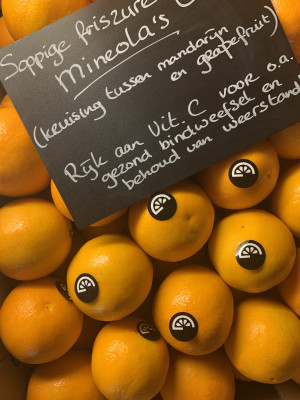 Sappige friszure
Mineola's
(kruising tussen mandarijn
en grapefruit)
Rijk aan Vit. C voor o.a.
gezond bindweefsel en
behoud van weerstand